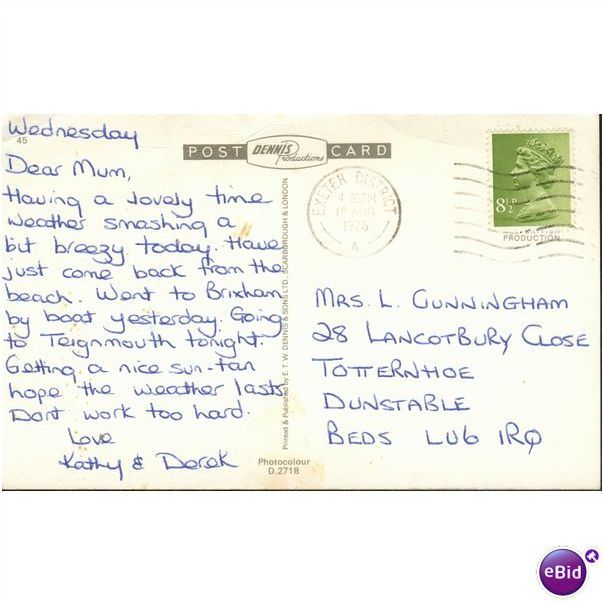 Wednesday
45
Dear Mum,
Having a lovely time
weather smashing a
bit breezy today. Have
just come back from the
beach. Went to Brixham
by boat yesterday. Going
to Teignmouth tonight.
Getting a nice sun-tan
hope the weather lasts
Dont work too hard.
Love
Kathy & Derek
POST DENNIS Productions CARD
Printed & Published by E.T.W. DENNIS & SONS LTD., SCARBOROUGH & LONDON
Photocolour
D.2718
EXETER DISTRICT
19 AUG
1976
A
8½P
PRODUCTION
MRS. L. CUNNINGHAM
28 LANCOTBURY CLOSE
TOTTERNHOE
DUNSTABLE
BEDS LU6 1RQ
eBid